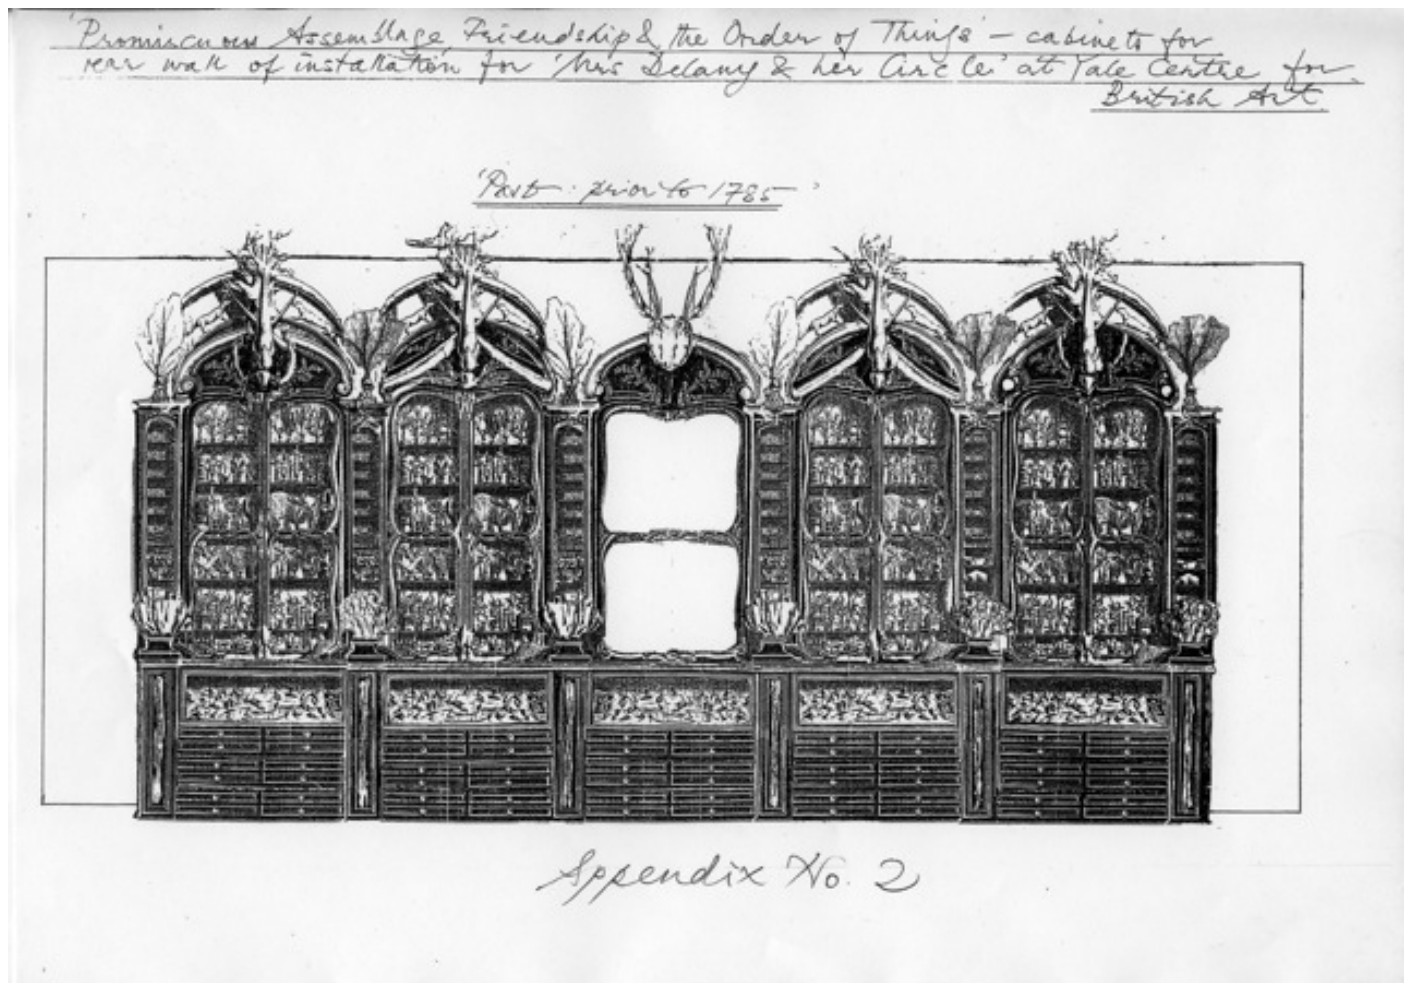 'Promiscuous Assemblage, Friendship & the Order of Things' – cabinets for
rear wall of installation for 'Mrs Delany & her Circle' at Yale Centre for
British Art
'Past: prior to 1785'
Appendix No. 2